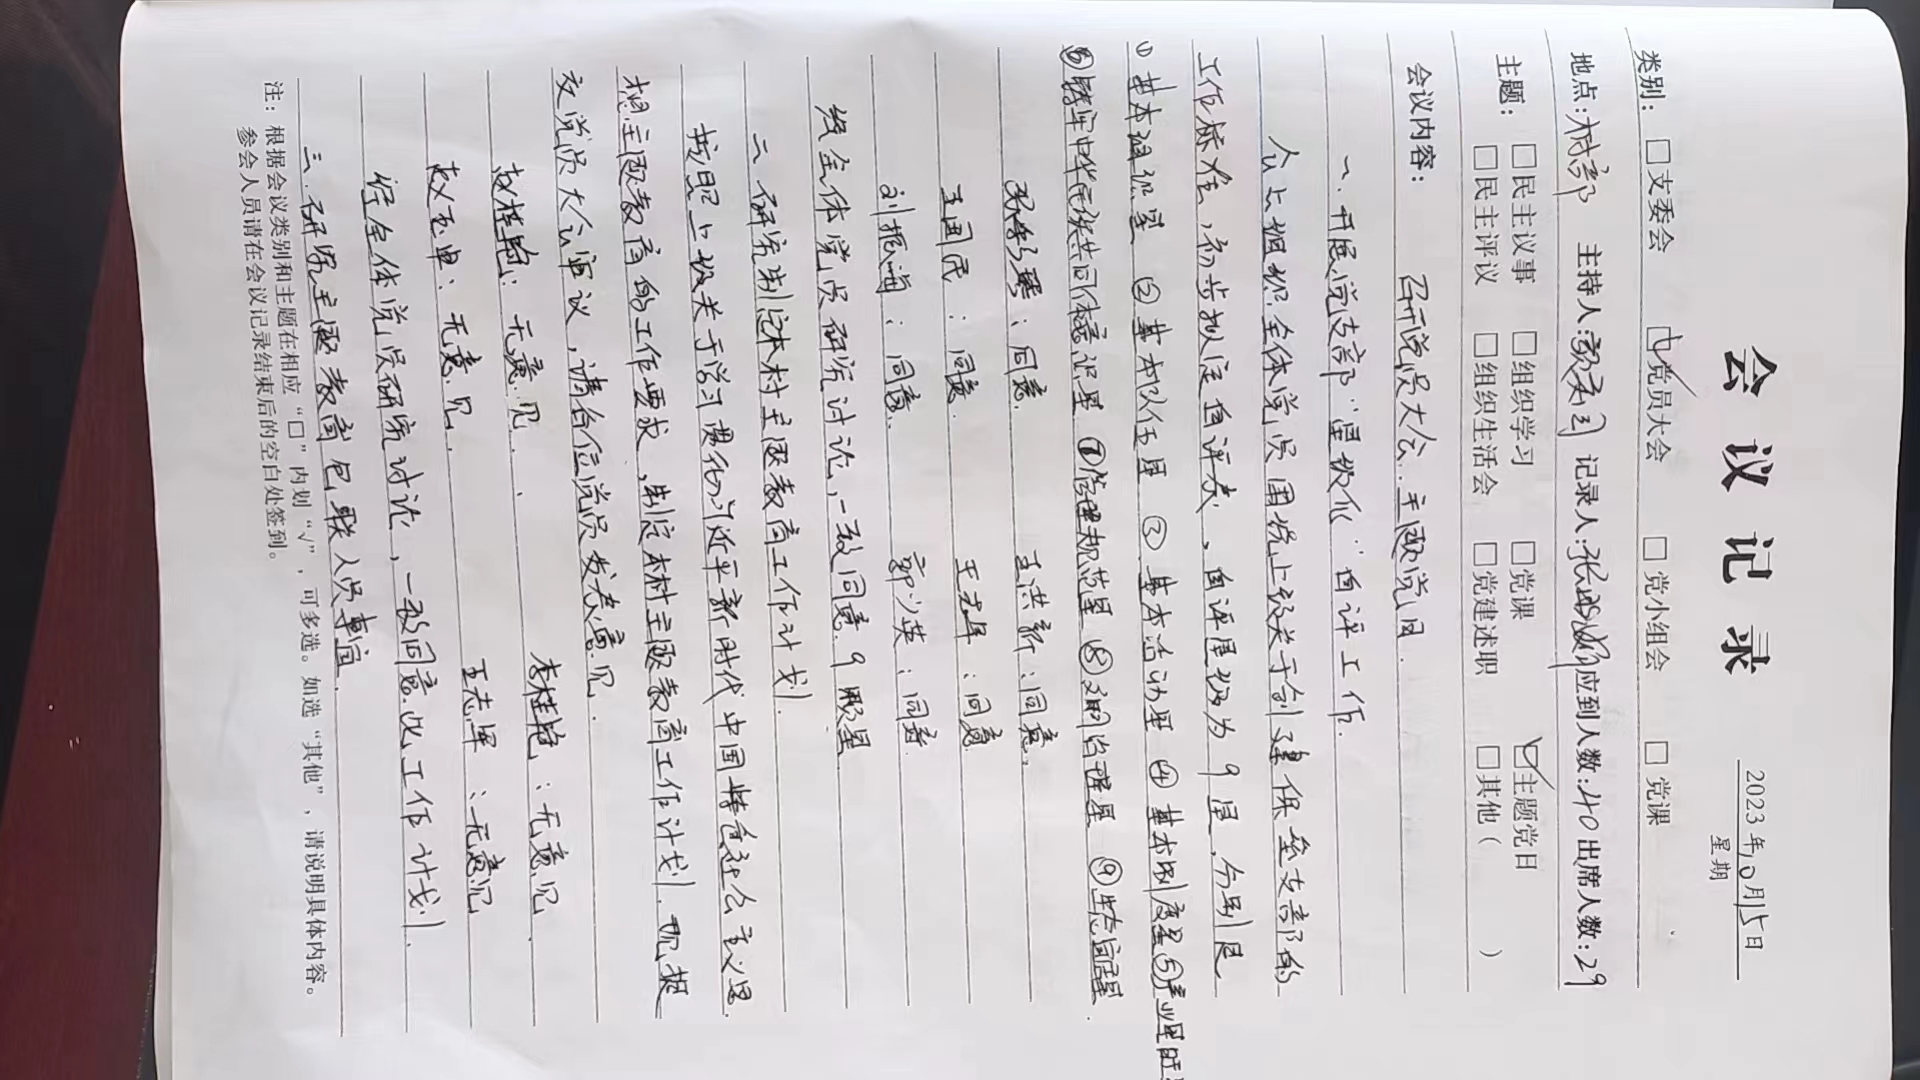 会议记录
2023年10月15日
星期
类别：□支委会 ☑党员大会 □党小组会 □党课
地点：村部 主持人： 记录人：张 应到人数：40 出席人数：29
主题：□民主议事 □组织学习 □党课 ☑主题党日
□民主评议 □组织生活会 □党建述职 □其他（ ）
会议内容： 召开党员大会.主题党日.
一、开展党支部“星级化”自评工作.
会上组织全体党员围绕上级关于创建 支部的
工作标准，初步拟定自评表，自评星级为9星，分别是
①基本 组织星 ②基本队伍星 ③基本活动星 ④基本制度星 ⑤产业 旺
⑥铸牢中华民族共同体意识星 ⑦管理规范星 ⑧ 治理星 ⑨生态 星.
：同意. 王洪新：同意.
王国民：同意. 王志军：同意
刘振海：同意. 郭少英：同意.
经全体党员研究讨论，一致同意9颗星
二、研究制定本村主题教育工作计划.
按照上级关于学习贯彻习近平新时代中国特色社会主义思
想主题教育的工作要求，制定本村主题教育工作计划.现提
交党员大会审议，请各位党员发表意见.
赵桂艳：无意见. 李桂艳：无意见.
赵玉申：无意见. 王志军：无意见
经全体党员研究讨论，一致同意此工作计划.
三、研究主题教育包联人员事宜.
注：根据会议类别和主题在相应“□”内划“√”，可多选。如选“其他”，请说明具体内容。
参会人员请在会议记录结束后的空白处签到。